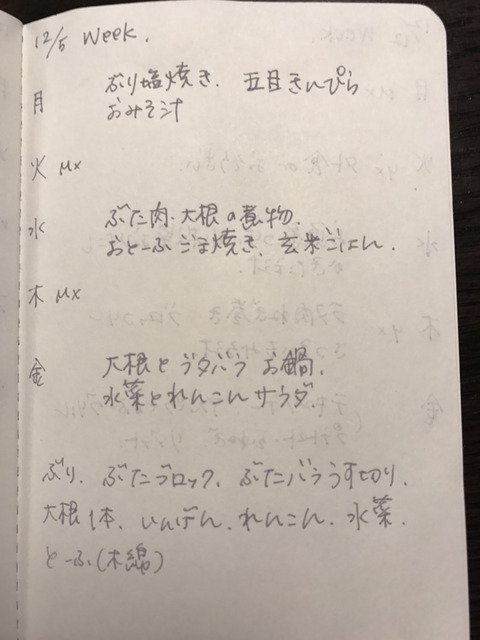 12/5 Week.
月 ぶり塩焼き. 五目きんぴら
おみそ汁
火 MX
水 ぶた肉・大根の煮物.
おとーふごま焼き. 玄米ごはん.
木 MX
金 大根とブタバラお鍋.
水菜とれんこんサラダ.
ぶり. ぶたブロック. ぶたバラうす切り.
大根1本. いんげん. れんこん. 水菜.
とーふ(木綿)